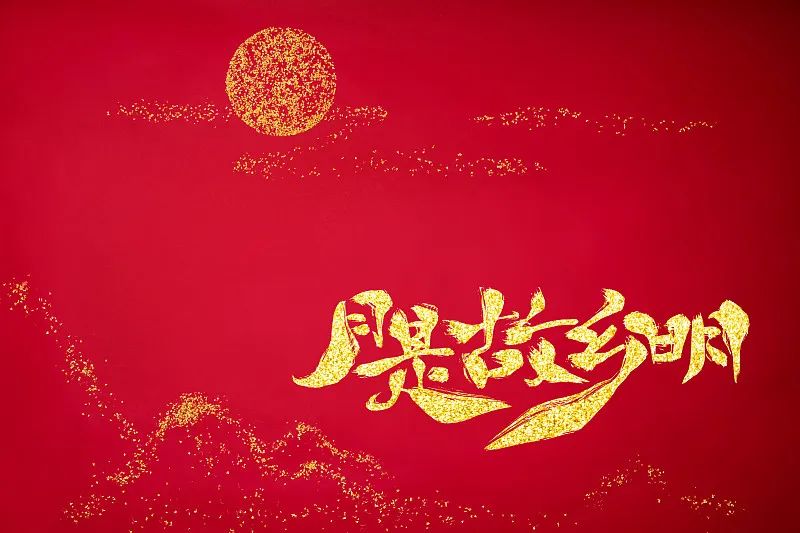 月是故乡明